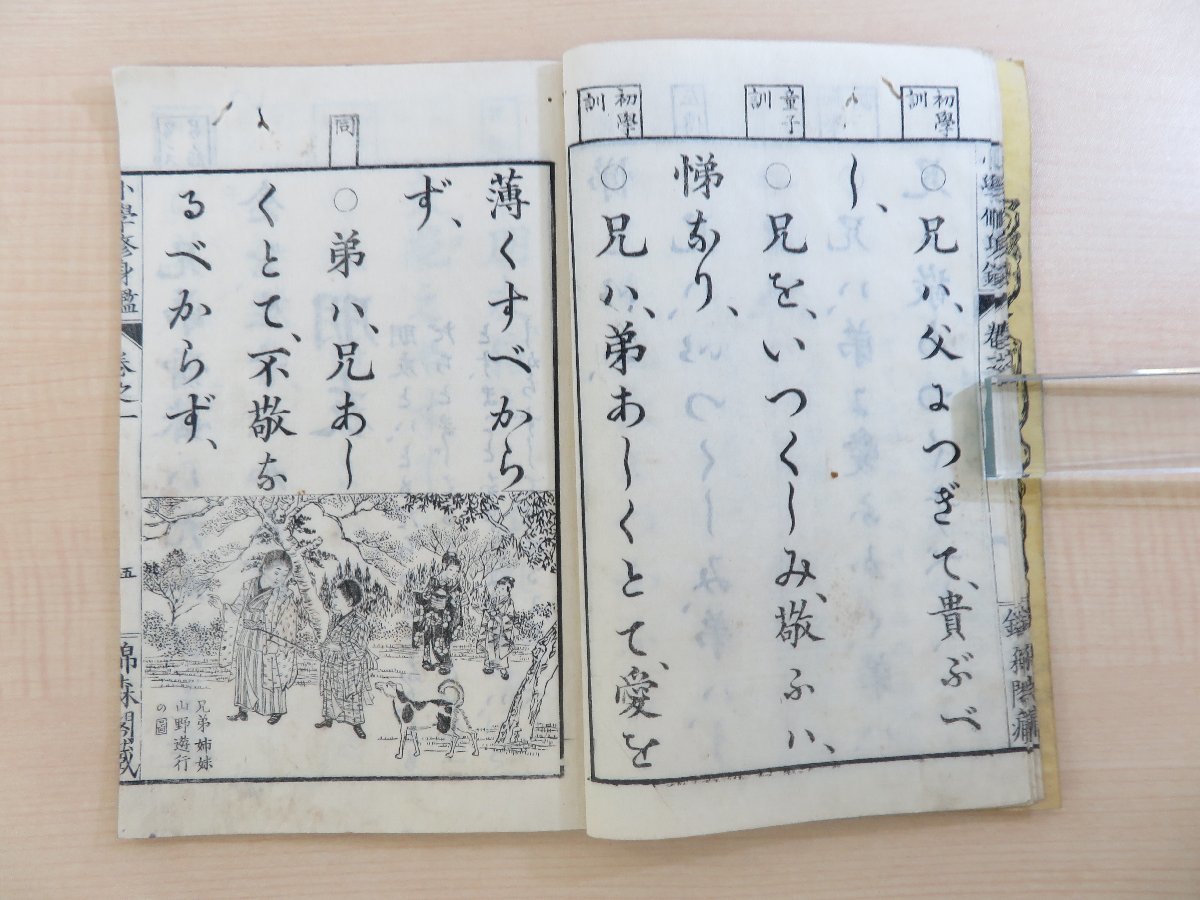 初學訓
○兄ハ、父につぎて、貴ぶべ
し、
童子訓
○兄を、いつくしみ、敬ふハ、
悌なり、
初學訓
○兄ハ、弟あしくとて、愛を
薄くすべから
ず、
同
○弟ハ、兄あし
くとて、不敬な
るべからず、
兄弟姉妹
山野遊行
の圖
小學修身鑑
卷之一
五
錦森閣藏